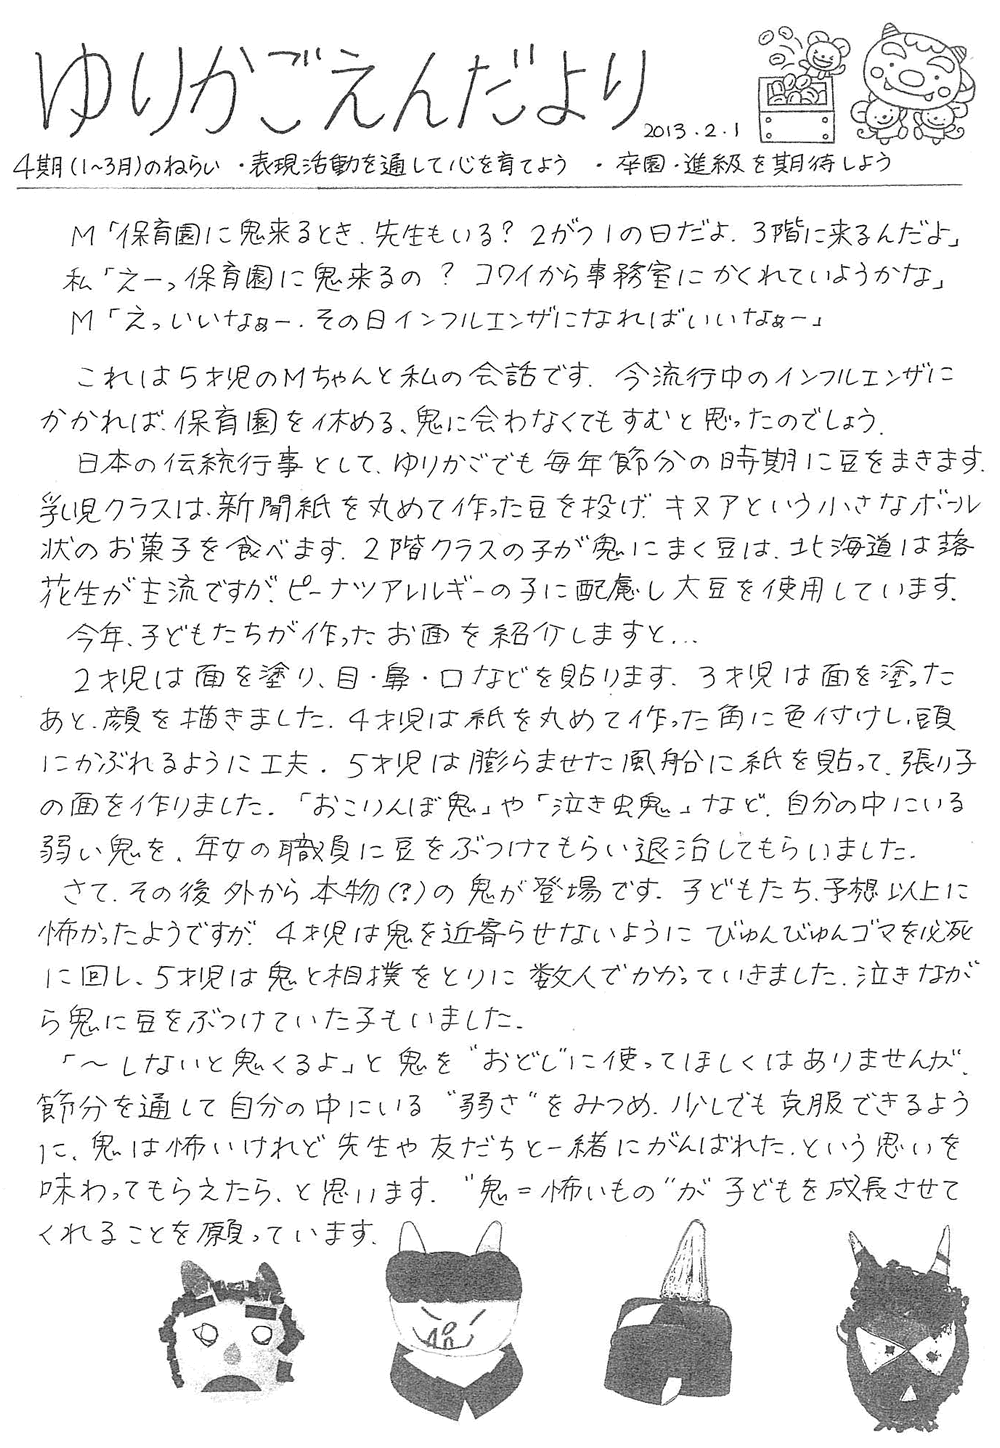 ゆりかごえんだより
2013.2.1
4期(1~3月)のねらい ・表現活動を通して心を育てよう ・卒園・進級を期待しよう
M「保育園に鬼来るとき、先生もいる?2がつ1の日だよ、3階に来るんだよ」
私「えーっ保育園に鬼来るの?コワイから事務室にかくれていようかな」
M「えっいいなぁー、その日インフルエンザになればいいなぁー」
これは5才児のMちゃんと私の会話です。今流行中のインフルエンザに
かかれば、保育園を休める、鬼に会わなくてもすむと思ったのでしょう。
日本の伝統行事として、ゆりかごでも毎年節分の時期に豆をまきます。
乳児クラスは、新聞紙を丸めて作った豆を投げ、キヌアという小さなボール
状のお菓子を食べます。2階クラスの子が鬼にまく豆は、北海道は落
花生が主流ですが、ピーナツアレルギーの子に配慮し大豆を使用しています。
今年、子どもたちが作ったお面を紹介しますと...
2才児は面を塗り、目・鼻・口などを貼ります。3才児は面を塗った
あと、顔を描きました。4才児は紙を丸めて作った角に色付けし、頭
にかぶれるように工夫。5才児は膨らませた風船に紙を貼って、張り子
の面を作りました。「おこりんぼ鬼」や「泣き虫鬼」など、自分の中にいる
弱い鬼を、年女の職員に豆をぶつけてもらい退治してもらいました。
さて、その後外から本物(?)の鬼が登場です。子どもたち、予想以上に
怖かったようですが、4才児は鬼を近寄らせないようにびゅんびゅんゴマを必死
に回し、5才児は鬼と相撲をとりに数人でかかっていきました。泣きなが
ら鬼に豆をぶつけていた子もいました。
「~しないと鬼くるよ」と鬼を“おどし”に使ってほしくはありませんが、
節分を通して自分の中にいる“弱さ”をみつめ、少しでも克服できるよう
に、鬼は怖いけれど先生や友だちと一緒にがんばれた、という思いを
味わってもらえたら、と思います。“鬼=怖いもの”が子どもを成長させて
くれることを願っています。